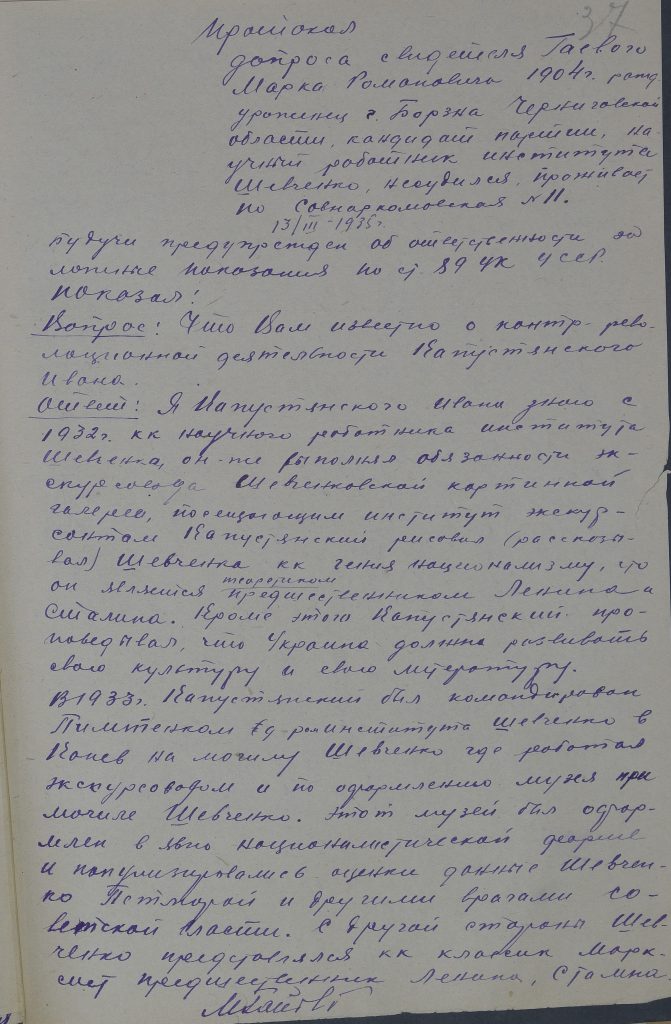 37
Протокол
допроса свидетеля Гаевого
Марка Романовича 1904г. рожд
уроженец г. Борзна Черниговской
области, кандидат партии, на-
учный работник института
Шевченко, несудился, проживает
по Совнаркомовская №11.
13/III-1935г.
Будучи предупрежден об ответственности за
ложные показания по ст. 89 УК УССР.
показал:
Вопрос: Что Вам известно о контр-рево-
люционной деятельности Капустянского
Ивана.
Ответ: Я Капустянского Ивана знаю с
1932г. кк научного работника института
Шевченка, он-же выполнял обязанности эк-
скурсовода Шевченковской картинной
галереи, посещающим институт экскур-
сантам Капустянский рисовал (рассказы-
вал) Шевченка кк гения национализму, что
он является теоретиком предшественником Ленина и
Сталина. Кроме этого Капустянский про-
поведывал, что Украина должна развивать
свою культуру и свою литературу.
В 1933г. Капустянский был командирован
института Шевченко в
Канев на могилу Шевченко где работал
экскурсоводом и по оформлению музея при
могиле Шевченко. Этот музей был офор-
млен в явно националистической форме
и популизировались оценки данные Шевчен-
ко Петлюрой и другими врагами со-
ветской власти. С другой стороны Шев-
ченко представлялся кк классик Марк-
сист предшественник Ленина, Сталина